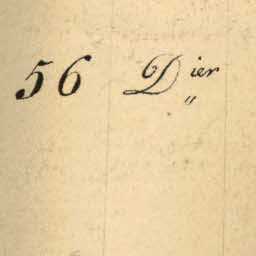 56 Dier